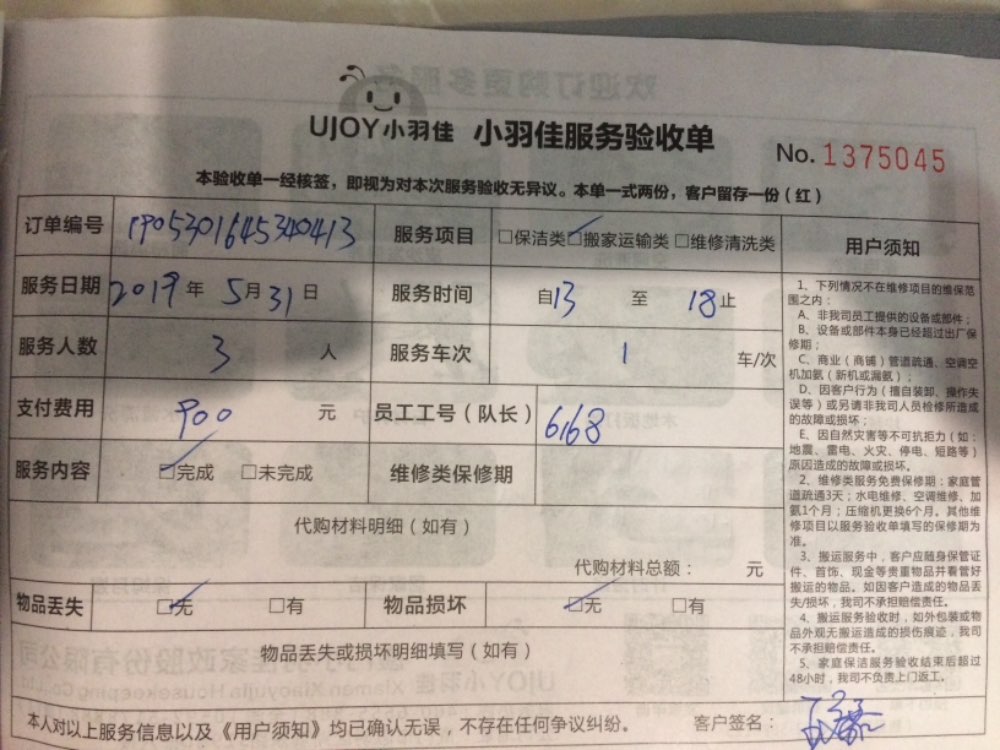 UJOY小羽佳 小羽佳服务验收单 No.1375045
本验收单一经核签，即视为对本次服务验收无异议。本单一式两份，客户留存一份（红）
订单编号 190530164534 0413 服务项目 □保洁类 ☑搬家运输类 □维修清洗类
服务日期 2019年5月31日 服务时间 自13至18止
服务人数 3人 服务车次 1 车/次
支付费用 900元 员工工号（队长） 6168
服务内容 ☑完成 □未完成 维修类保修期
代购材料明细（如有）
代购材料总额： 元
物品丢失 ☑无 □有 物品损坏 ☑无 □有
物品丢失或损坏明细填写（如有）
本人对以上服务信息以及《用户须知》均已确认无误，不存在任何争议纠纷。 客户签名：
用户须知
1、下列情况不在维修项目的维保范
围之内：
A、非我司员工提供的设备或部件；
B、设备或部件本身已经超过出厂保
修期；
C、商业（商铺）管道疏通、空调空
机加氨（新机或漏氨）；
D、因客户行为（擅自装卸、操作失
误等）或另请非我司人员检修所造成
的故障或损坏；
E、因自然灾害等不可抗拒力（如：
地震、雷电、火灾、停电、短路等）
原因造成的故障或损坏。
2、维修类服务免费保修期：家庭管
道疏通3天；水电维修、空调维修、加
氨1个月；压缩机更换6个月。其他维
修项目以服务验收单填写的保修期为
准。
3、搬运服务中，客户应随身保管证
件、首饰、现金等贵重物品并看管好
搬运的物品。如因客户造成的物品丢
失/损坏，我司不承担赔偿责任。
4、搬运服务验收时，如外包装或物
品外观无搬运造成的损伤痕迹，我司
不承担赔偿责任。
5、家庭保洁服务验收结束后超过
48小时，我司不负责上门返工。